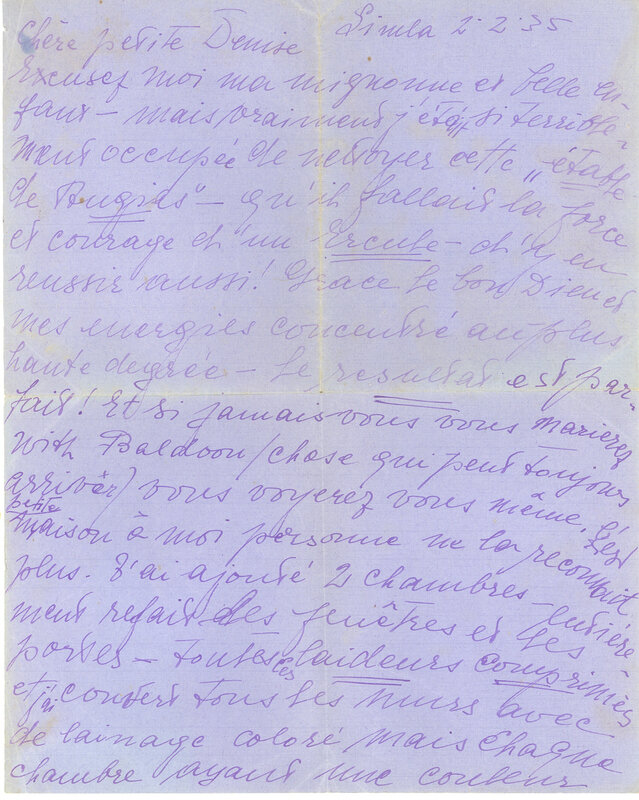 Simla 2.2.35
Chère petite Denise
Excusez moi ma mignonne et belle en-
fant – mais vraiment j'étais si terrible-
ment occupée de nettoyer cette „étable
de Augias" – qu'il fallait la force
et courage d'un Ercule – d'y en
reussir aussi! Grace le bon Dieu et
mes energies concentré au plus
haute degrée – le resultat est par-
fait! Et si jamais vous vous marierez
with Baldoon (chose qui peut toujours
arriver) vous voyerez vous même,
petite
maison à moi personne ne la reconnait
plus. J'ai ajouté 2 chambres – entière
ment refait des fenêtres et les
portes – toutes les laideurs comprimées
et j'ai couvert tous les murs avec
de lainage coloré mais chaque
chambre ayant une couleur